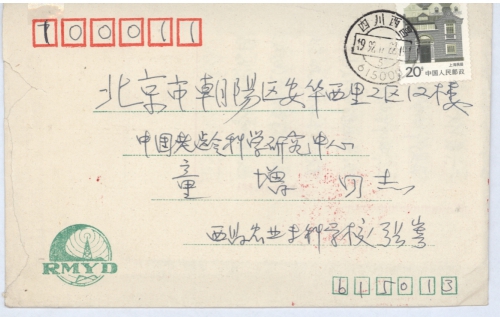 100011
四川西昌
615000
20分 中国人民邮政
上海民居
北京市朝陽区安华西里2区12楼
中国老龄科学研究中心
童 增 同志
西昌农业专科学校 张
RMYD
615013